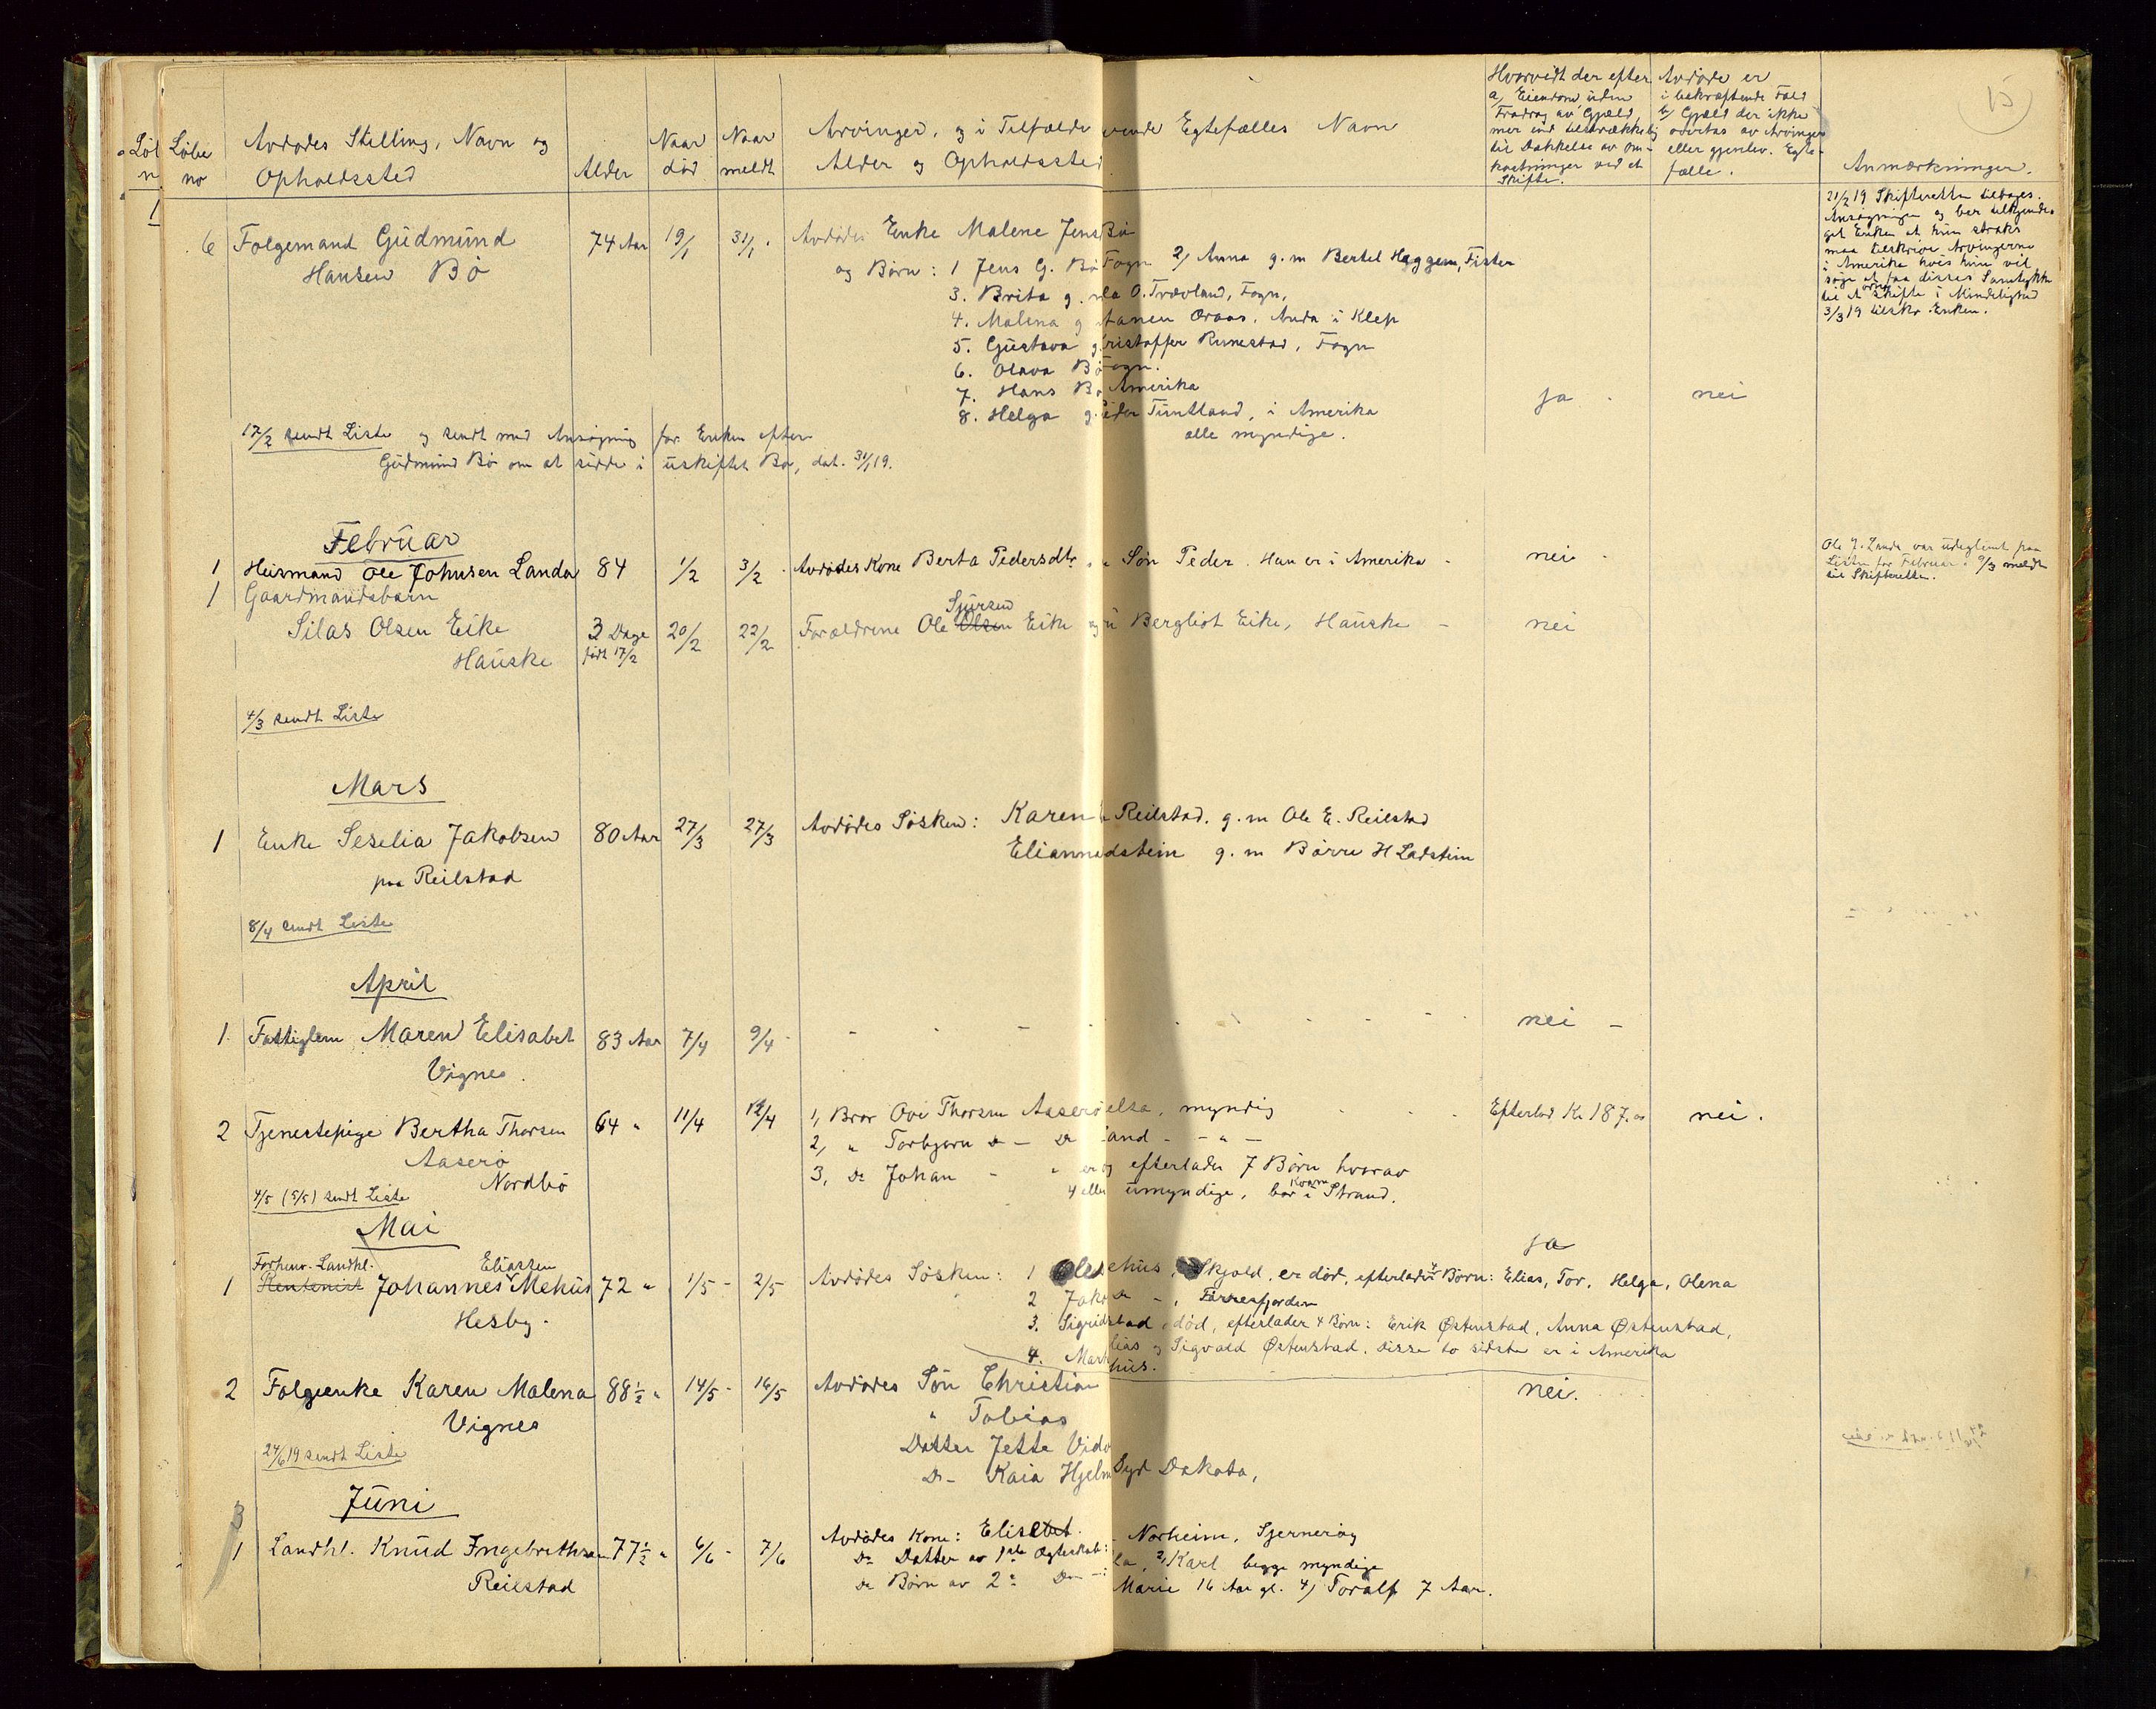 Løbe no
Avdødes Stilling, Navn og Opholdssted
Alder
Naar død
Naar meldt
Arvinger, og i Tilfælde vende Egtefælles Navn
Alder og Opholdssted
Hvorvidt der efter Avdøde er
a) Eiendom uden Fradrag av Gjæld mer end tilstrækkelig til Dækkelse av Omkostninger ved et Skifte.
i bekræftende Fald
b) Gjæld der ikke overtas av Arvinger eller gjenlev. Egtefælle.
Anmærkninger.
6 Følgemand Gudmund 74 Aar 19/1 31/1 Avdødes Enke Malene Jens Bø
Hansen Bø og Børn: 1 Jens G. Bø Fogn 2, Anna g. m Bertel Haggem, Fister
3. Brita g. O. Trævland, Fogn,
4. Malena g Oraas, Anda i Klep
5. Gustava g. ristoffer Runestad, Fogn
6. Olava Bø ogn.
7. Hans Bø Amerika
8. Helga g. eder Tuntland, i Amerika ja nei
alle myndige.
17/2 sendt Liste og sendt med Ansøgning for Enken efter
Gudmund Bø om at sidde i uskiftet Bo, dat. 31/1 19.
21/2 19 Skifteretten tilbages.
Ansøgningen og ber tilkjendegit Enken at hun straks
maa tilskrive Arvingerne
i Amerika hvis hun vil
søge at faa disses Samtykke
til at Skifte i Mindelighed
3/3 19 tilskr. Enken.
Februar
1 Husmand Ole Johnsen Landa 84 1/2 3/2 Avdødes Kone Berta Pedersdtr. Søn Peder. Han er i Amerika nei
Ole J. Landa var udeglemt paa
Listen for Februar. 9/3 meldt
til Skifteretten.
1 Gaardmandsbarn
Silas Olsen Eike 3 Dage 20/2 22/2 Forældrene Ole Olsen Sjursen Eike og Bergliot Eike, Hauske nei
Hauske født 17/2
4/3 sendt Liste
Mars
1 Enke Seselia Jakobsen 80 Aar 27/3 27/3 Avdødes Søsken: Karen Reilstad. g. m Ole E. Reilstad
paa Reilstad Elianna dstein g. m Børre H Ladstein
8/4 sendt Liste
April
1. Fattiglem Maren Elisabet 83 Aar 7/4 9/4 nei
Vignes.
2 Tjenestepige Bertha Thorsen 64 " 11/4 12/4 1, Bror Ove Thorsen Aaserø elsa, myndig Efterlod Kr 187.00 nei.
Aaserø 2, " Torbjørn Do — Do land - - " -
Nordbø 3, Do Johan - " er og efterlader 7 Børn hvorav
4/5 (5/5) sendt Liste 4 elle umyndige, bor i Strand.
Mai
1 Rentenist Forhenv. Landhl. Johannes Eliassen Mehus 72 " 1/5 2/5 Avdødes Søsken: 1 Ole ehus, Skjold. er død, efterlader 4 Børn: Elias, Tor, Helga, Olena ja
Hesby. 2 Jak , Førresfjorden
3. Sigrid stad død, efterlader 4 Børn: Erik Østenstad, Anna Østenstad,
lias og Sigvald Østenstad. Disse to sidste er i Amerika
4. Mart hus.
2 Følgeenke Karen Malena 88½ " 14/5 16/5 Avdødes Søn Christian nei.
Vignes " Tobias
Datter Jette Vid
Do- Kaia Hjelm Syd Dakota,
24/6 19 sendt Liste
Juni
1 Landhl. Knud Ingebrethsen 77½ " 6/6 7/6 Avdødes Kone: Elisebet. Norheim, Sjernerøy
Reilstad Do Datter av 1ste Egteskab: la, 2, Karl begge myndige
Do Børn av 2: Do —: Marie 16 Aar gl. 4, Toralf 7 Aar.